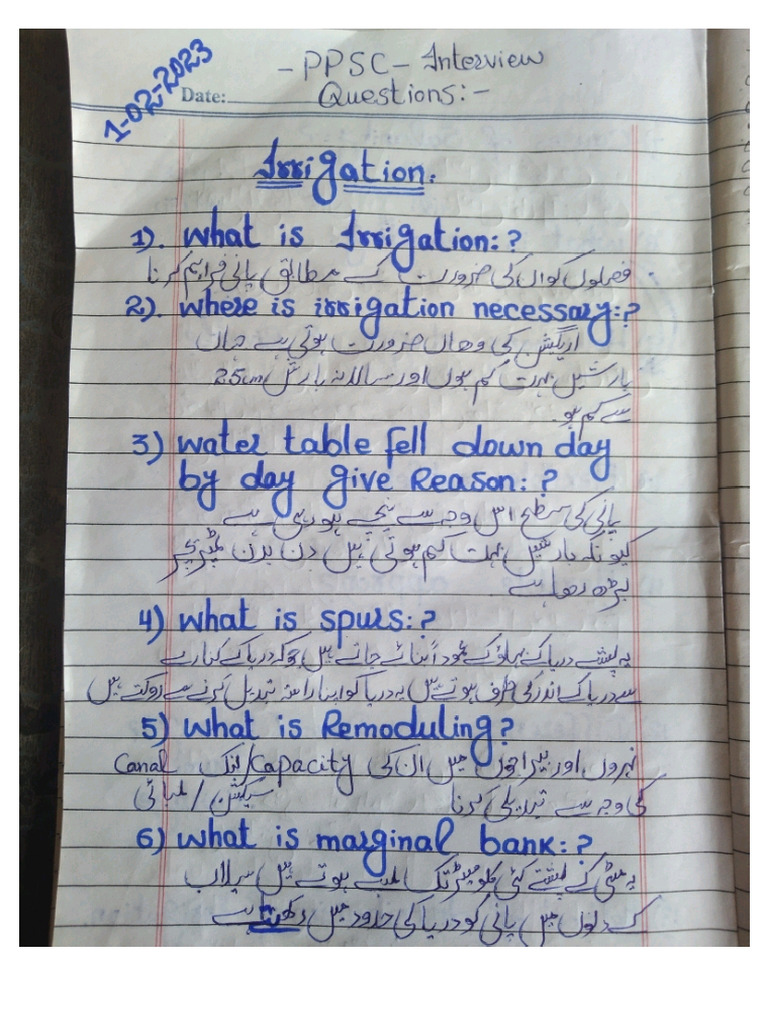 1-02-2023
- PPSC - Interview
Date: Questions:-
Irrigation.
1). What is Irrigation:?
فصلوں کو ان کی ضرورت کے مطابق پانی فراہم کرنا
2). Where is irrigation necessary:?
اریگیشن کی وھاں ضرورت ہوتی ہے جہاں
بارشیں بہت کم ہوں اور سالانہ بارش 25cm
سے کم ہو.
3) water table fell down day
by day give Reason:?
پانی کی سطح اس وجہ سے نیچے ہو رہی ہے
کیونکہ بارشیں بہت کم ہوتی ہیں دن بدن ٹمپریچر
بڑھ رھا ہے
4) What is spurs:?
یہ پشتے دریا کے بہاؤ کے عموداً بنائے جاتے ہیں جو کہ دریا کے کنارے
سے دریا کے اندر کی طرف ہوتے ہیں یہ دریا کو اپنا راستہ تبدیل کرنے سے روکتے ہیں
5) What is Remoduling?
نہروں اور میں ان کی Capacity/ Canal
کی وجہ سے تبدیلی کرنا سیکشن / لمبائی
6) What is marginal bank:?
یہ مٹی کے پشتے کئی کلومیٹر تک لمبے ہوتے ہیں سیلاب
کے دنوں میں پانی کو دریا کی حدود میں رکھتا ہے